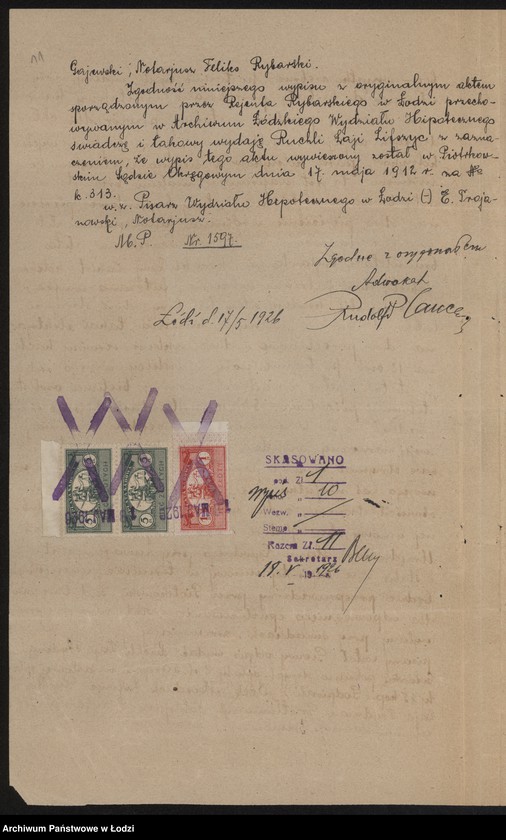 Gajewski, Notarjusz Feliks Rybarski.
Zgodność niniejszego wypisu z oryginalnym aktem
sporządzonym przez Rejenta Rybarskiego w Łodzi przecho-
wywanym w Archiwum Łódzkiego Wydziału Hipotecznego
świadczę i takowy wydaję Ruchli Łaji Lifszyc z zazna-
czeniem, że wypis tego aktu, wywieszony został w Piotrkow-
skim Sądzie Okręgowym dnia 17 maja 1912 r. za №
k. 313.
w. z. Pisarz Wydziału Hipotecznego w Łodzi (-) E. Troja-
nowski, Notarjusz.
M. P. Nr. 1597.
Zgodne z oryginałem
Adwokat
Rudolf
Łódź d. 17/5 1926
SKASOWANO
Zł 1
wpis „ 10
Wezw. „
Stemp. „
Razem Zł. 11
Sekretarz
19. V 1926
Archiwum Państwowe w Łodzi